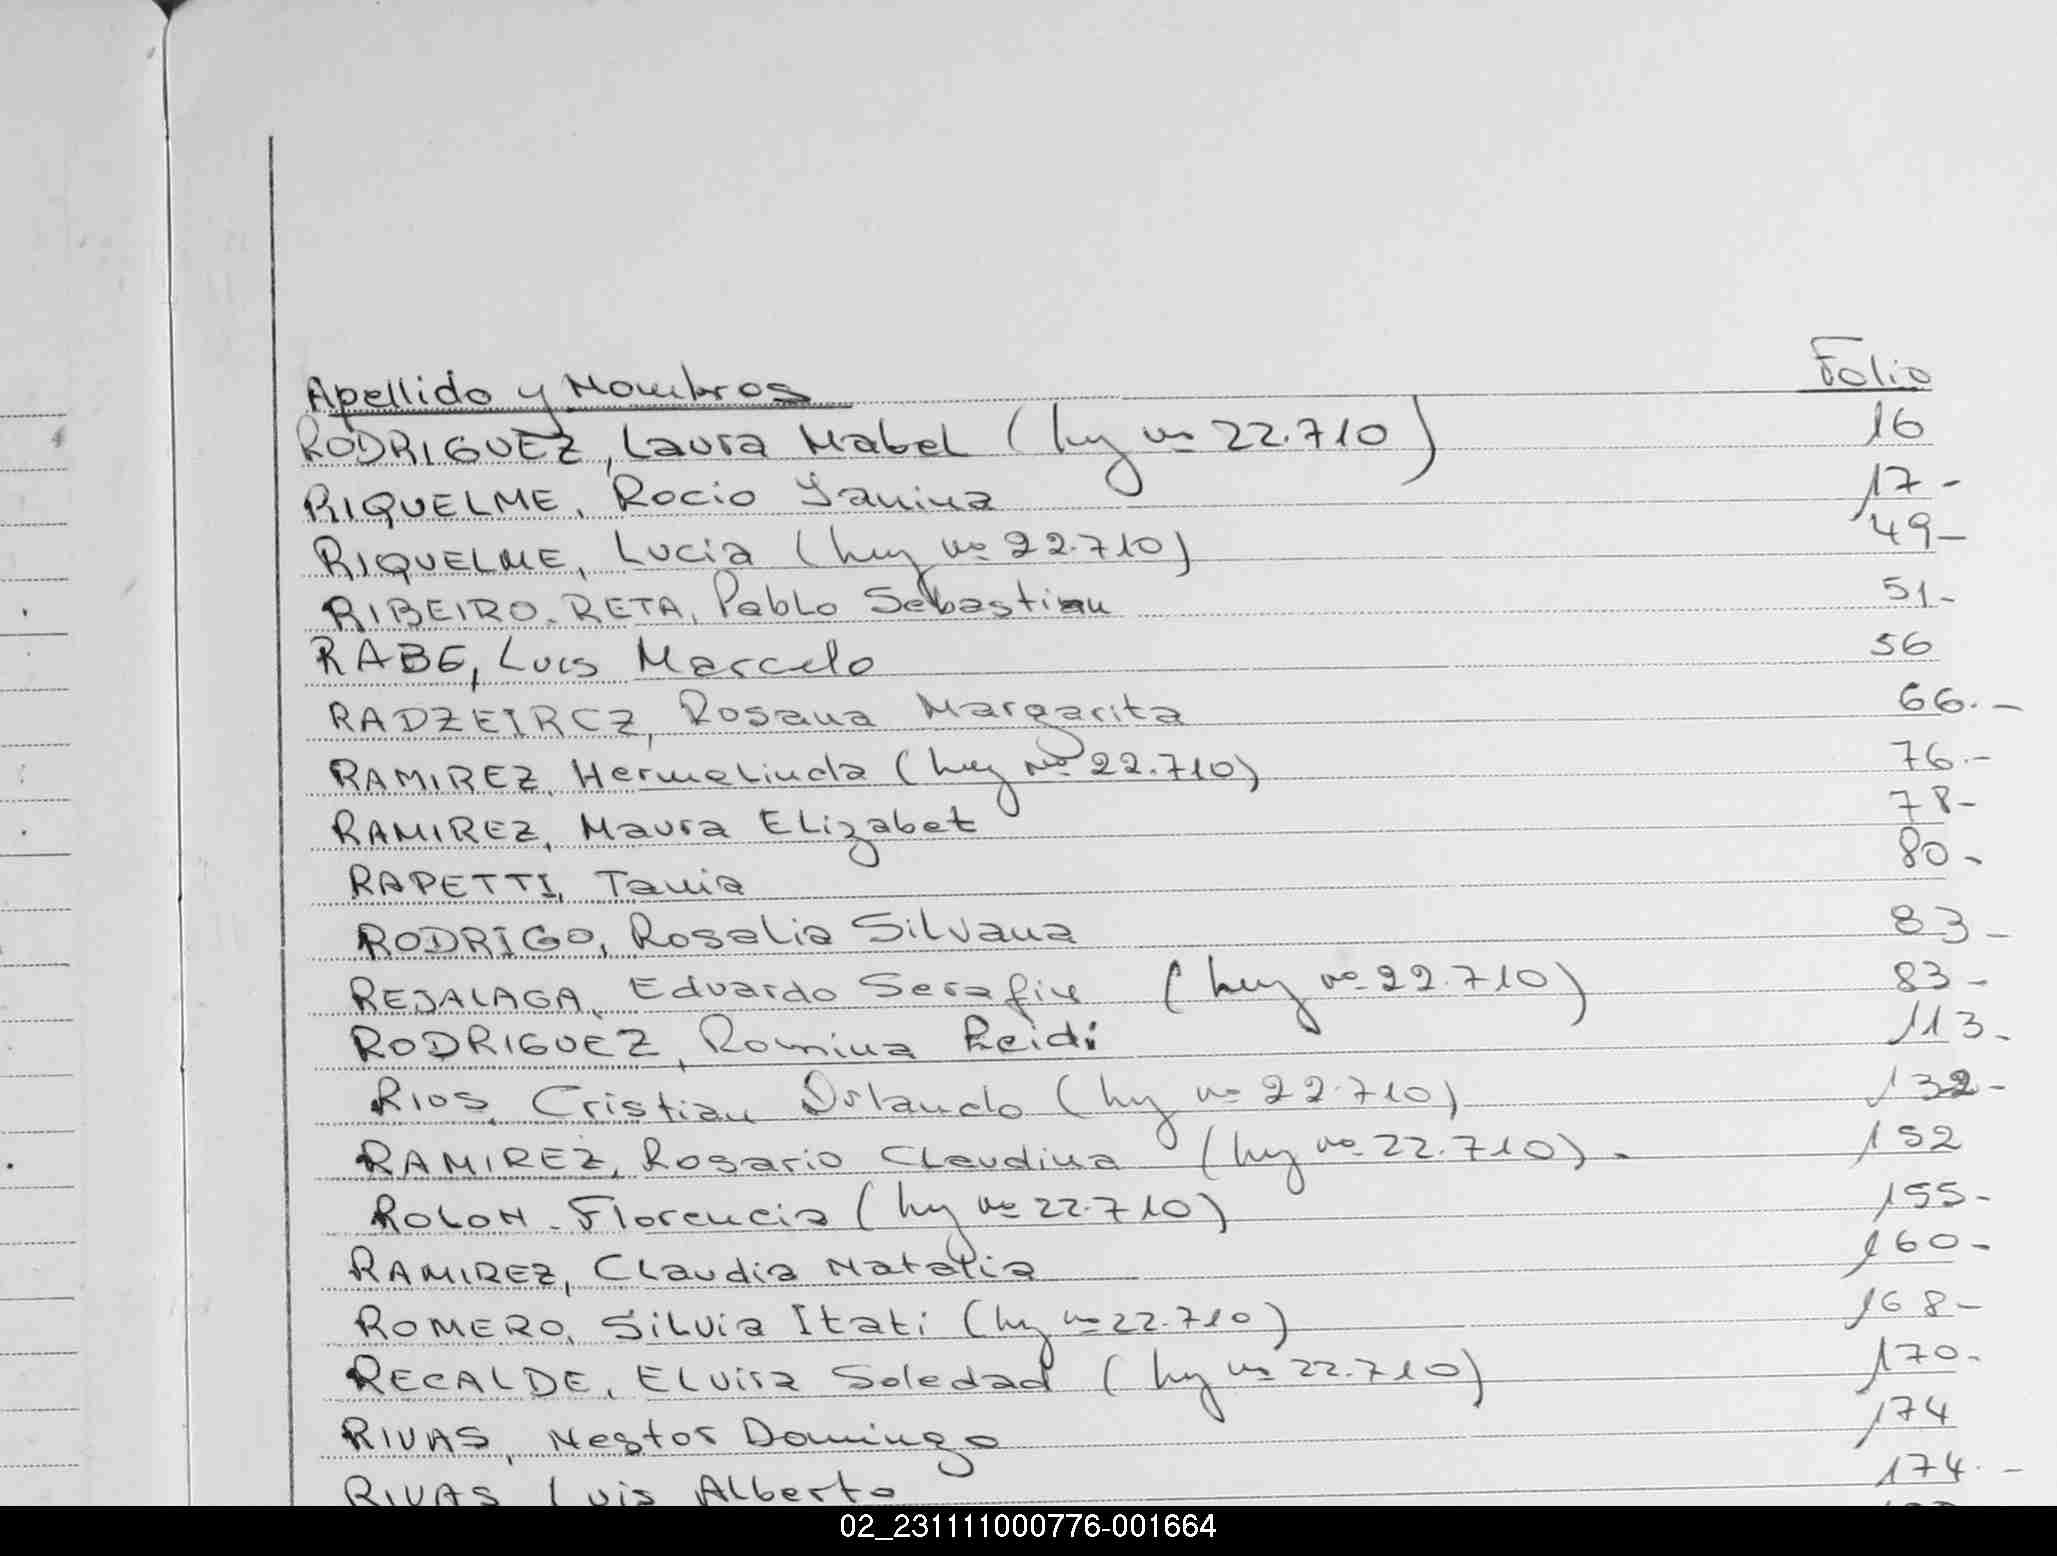 Apellido y Nombres Folio
RODRIGUEZ, Laura Mabel (Ley nº 22.710) 16
RIQUELME, Rocio Yanina 17-
RIQUELME, Lucia (Ley nº 22.710) 49-
RIBEIRO-RETA, Pablo Sebastian 51-
RABE, Luis Marcelo 56
RADZEIRCZ, Rosana Margarita 66.-
RAMIREZ, Hermelinda (Ley Nº 22.710) 76.-
RAMIREZ, Maura ELizabet 78-
RAPETTI, Tania 80-
RODRIGO, Rosalia Silvana 83-
REJALAGA, Eduardo Serafin (Ley nº 22.710) 83-
RODRIGUEZ, Romina Heidi 113-
RIOS, Cristian Orlando (Ley nº 22.710) 132-
RAMIREZ, Rosario Claudina (Ley nº 22.710).- 152
ROLON-Florencia (Ley nº 22.710) 155-
RAMIREZ, Claudia Natalia 160-
ROMERO, Silvia Itati (Ley nº 22.710) 168-
RECALDE, Elvira Soledad (Ley nº 22.710) 170-
RIVAS, Nestor Domingo 174
RIVAS, Luis Alberto 174.-
02_231111000776-001664